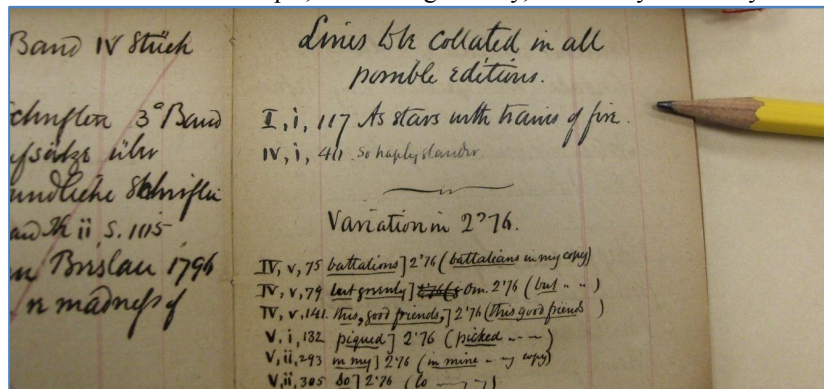 Band IV Stück
chriften 3º Band
ufsätze über
undliche Schriften
S. 1115
Brislau 1796
n madness of
Lines to be collated in all
possible editions.
I, i, 117 As stars with trains of fire.
IV, i, 40. So haply slander.
Variation in 2º 76.
IV, v, 75 battalions] 2º76 (battalians in my copy)
IV, v, 79 but greenly] om. 2º76 (but " ")
IV, v, 141. this, good friends,] 2º76 (this good friends )
V, i, 132 piqued] 2º76 (picked " " ")
V, ii, 293 in my] 2º76 (in mine " my copy)
V, ii, 305 So] 2º76 (to " " ")